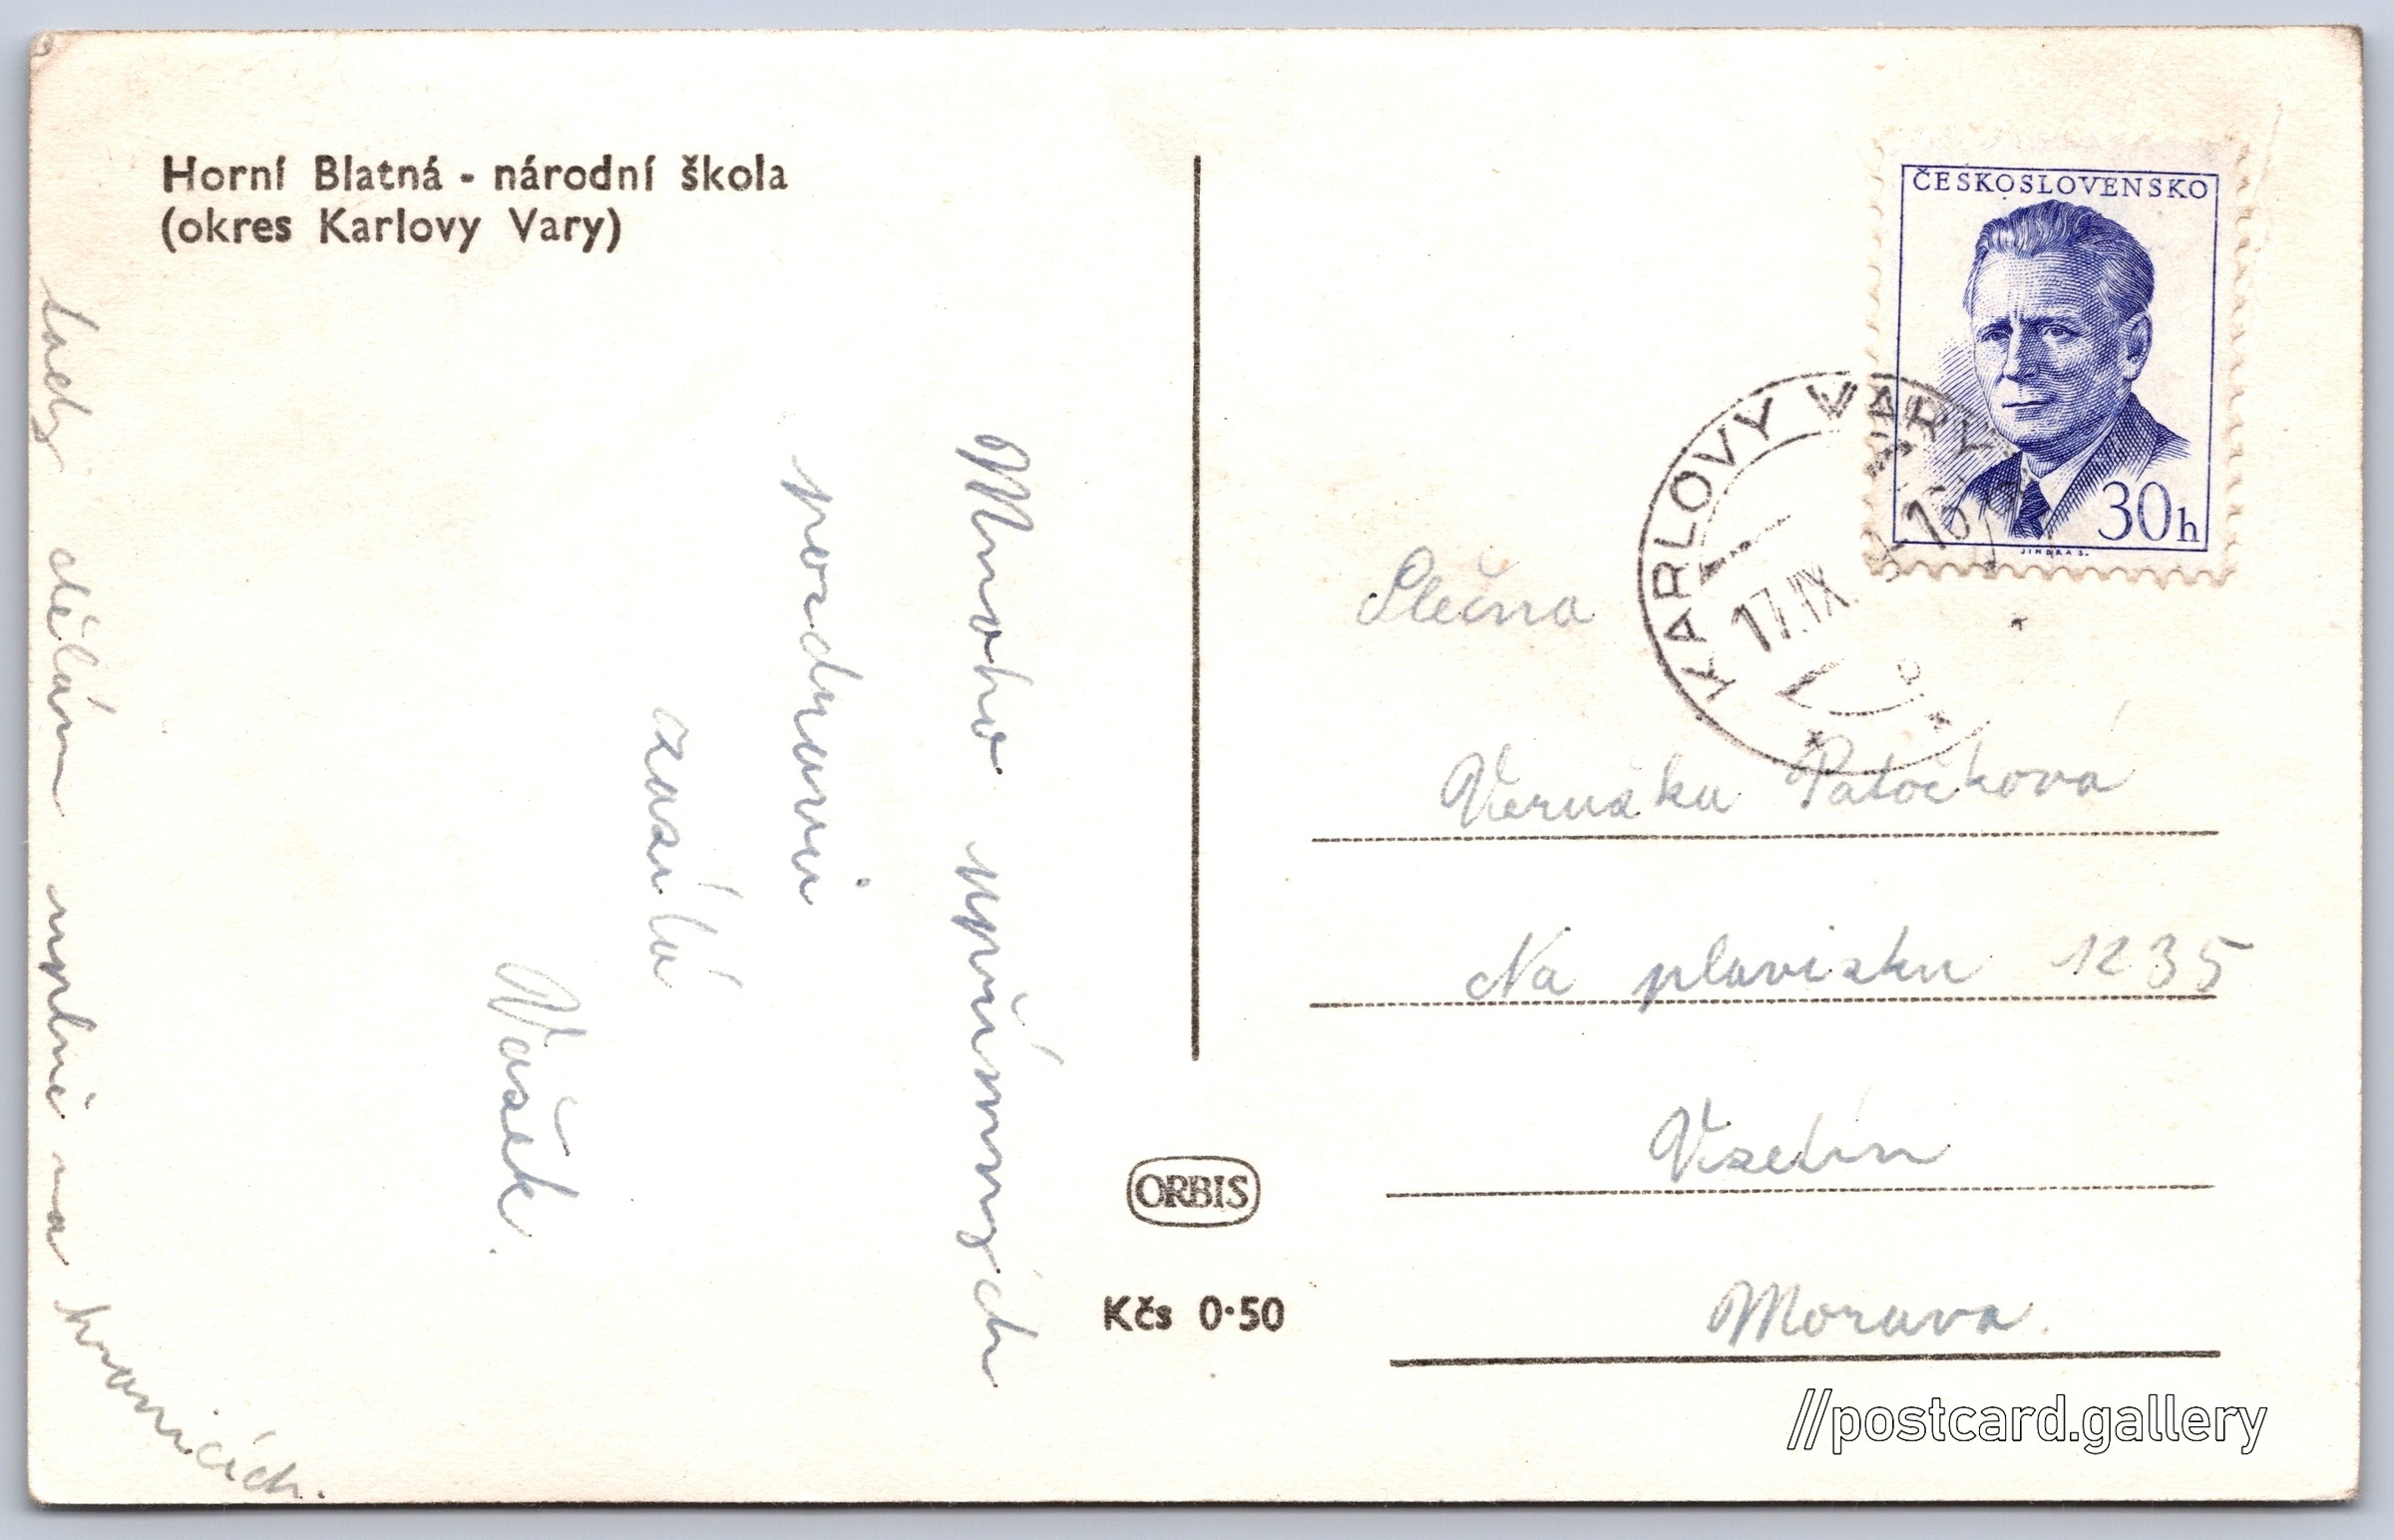 Horní Blatná - národní škola
(okres Karlovy Vary)
Mnoho upřímných
pozdravů
zasílá
Vašek.
tady dělám úplně na hranicích.
ČESKOSLOVENSKO
30h
JINDRA S.
KARLOVY VARY
17.IX
Slečna
Veruška Patočková
Na plavisku 1235
Vsetín
Morava.
ORBIS
Kčs 0·50
//postcard.gallery